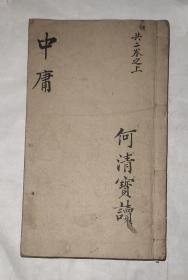 共二卷之上
何清寶讀
中庸